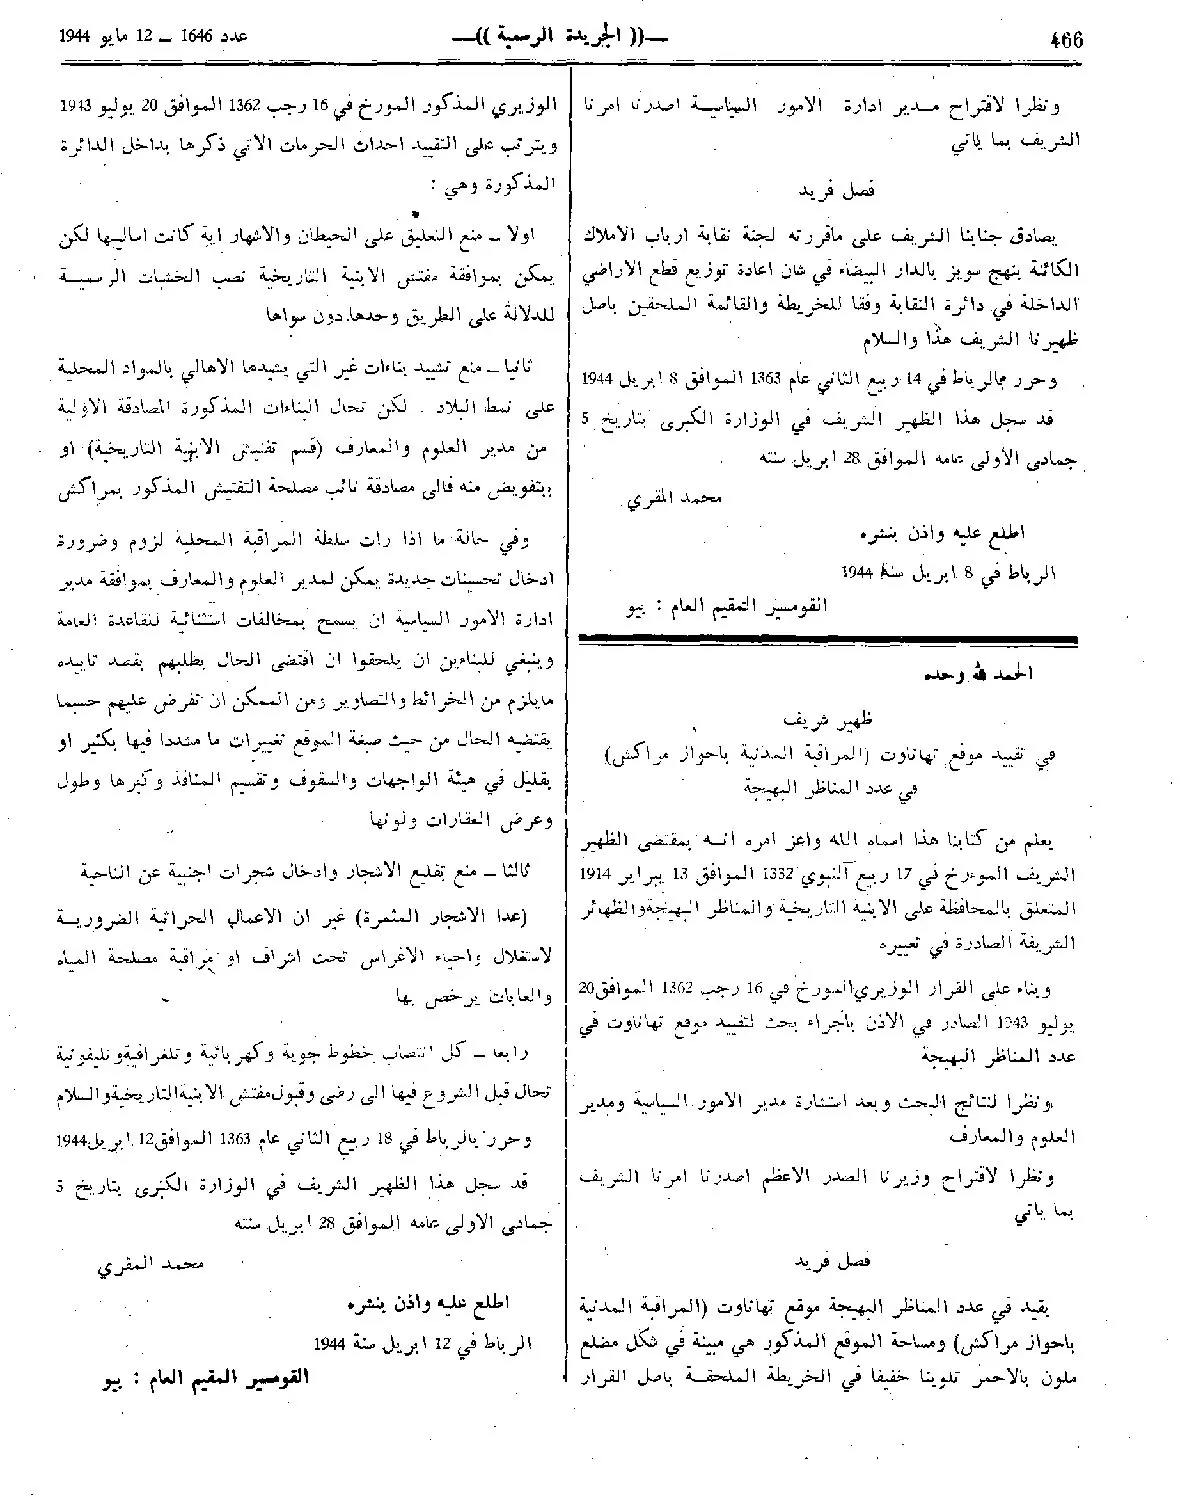 466
—(( الجريدة الرسمية ))—
عدد 1646 – 12 مايو 1944
ونظرا لاقتراح مدير ادارة الامور السياسية اصدرنا امرنا
الشريف بما ياتي
فصل فريد
يصادق جنابنا الشريف على ماقررته لجنة نقابة ارباب الاملاك
الكائنة بنهج سويز بالدار البيضاء في شان اعادة توزيع قطع الاراضي
الداخلة في دائرة النقابة وفقا للخريطة والقائمة الملحقين باصل
ظهيرنا الشريف هذا والسلام
وحرر بالرباط في 14 ربيع الثاني عام 1363 الموافق 8 ابريل 1944
قد سجل هذا الظهير الشريف في الوزارة الكبرى بتاريخ 5
جمادى الأولى عامه الموافق 28 ابريل سنته
محمد المقري
اطلع عليه واذن بنشره
الرباط في 8 ابريل سنة 1944
القومسير المقيم العام : بيو
الحمد لله وحده
ظهير شريف
في تقييد موقع تهاناوت (المراقبة المدنية باحواز مراكش)
في عدد المناظر البهيجة
يعلم من كتابنا هذا اسماه الله واعز امره انه بمقتضى الظهير
الشريف المورخ في 17 ربيع النبوي 1332 الموافق 13 براير 1914
المتعلق بالمحافظة على الابنية التاريخية والمناظر البهيجة والظهائر
الشريفة الصادرة في تغييره
وبناء على القرار الوزيري المورخ في 16 رجب 1362 الموافق 20
يوليو 1943 الصادر في الاذن باجراء بحث لتقييد موقع تهاناوت في
عدد المناظر البهيجة
ونظرا لنتائج البحث وبعد استشارة مدير الامور السياسية ومدير
العلوم والمعارف
ونظرا لاقتراح وزيرنا الصدر الاعظم اصدرنا امرنا الشريف
بما ياتي
فصل فريد
يقيد في عدد المناظر البهيجة موقع تهاناوت (المراقبة المدنية
باحواز مراكش) ومساحة الموقع المذكور هي مبينة في شكل مضلع
ملون بالاحمر تلوينا خفيفا في الخريطة الملحقة باصل القرار
الوزيري المذكور المورخ في 16 رجب 1362 الموافق 20 يوليو 1943
ويترتب على التقييد احداث الحرمات الاتي ذكرها بداخل الدائرة
المذكورة وهي :
اولا – منع التعليق على الحيطان والاشهار اية كانت اساليبها لكن
يمكن بموافقة مفتش الابنية التاريخية نصب الخشبات الرسمية
للدلالة على الطريق وحدها دون سواها
ثانيا – منع تشييد بناءات غير التي يشيدها الاهالي بالمواد المحلية
على نمط البلاد . لكن تحال البناءات المذكورة للمصادقة الاولية
من مدير العلوم والمعارف (قسم تفتيش الابنية التاريخية) او
بتفويض منه فالى مصادقة نائب مصلحة التفتيش المذكور بمراكش
وفي حالة ما اذا رات سلطة المراقبة المحلية لزوم وضرورة
ادخال تحسينات جديدة يمكن لمدير العلوم والمعارف بموافقة مدير
ادارة الامور السياسية ان يسمح بمخالفات استثنائية للقاعدة العامة
وينبغي للبناءين ان يلحقوا ان اقتضى الحال بطلبهم بقصد تاييده
مايلزم من الخرائط والتصاوير ومن الممكن ان تفرض عليهم حسبما
يقتضيه الحال من حيث صبغة الموقع تغييرات ما متددا فيها بكثير او
بقليل في هيئة الواجهات والسقوف وتقسيم المنافذ وكبرها وطول
وعرض العقارات ولونها
ثالثا – منع تقليع الاشجار وادخال شجرات اجنبية عن الناحية
(عدا الاشجار المثمرة) غير ان الاعمال الحراثية الضرورية
لاستغلال واحياء الاغراس تحت اشراف او مراقبة مصلحة المياه
والغابات يرخص بها
رابعا – كل انتصاب خطوط جوية وكهربائية وتلغرافية وتليفونية
تحال قبل الشروع فيها الى رضى وقبول مفتش الابنية التاريخية والسلام
وحرر بالرباط في 18 ربيع الثاني عام 1363 الموافق 12 ابريل 1944
قد سجل هذا الظهير الشريف في الوزارة الكبرى بتاريخ 5
جمادى الاولى عامه الموافق 28 ابريل سنته
محمد المقري
اطلع عليه واذن بنشره
الرباط في 12 ابريل سنة 1944
القومسير المقيم العام : بيو